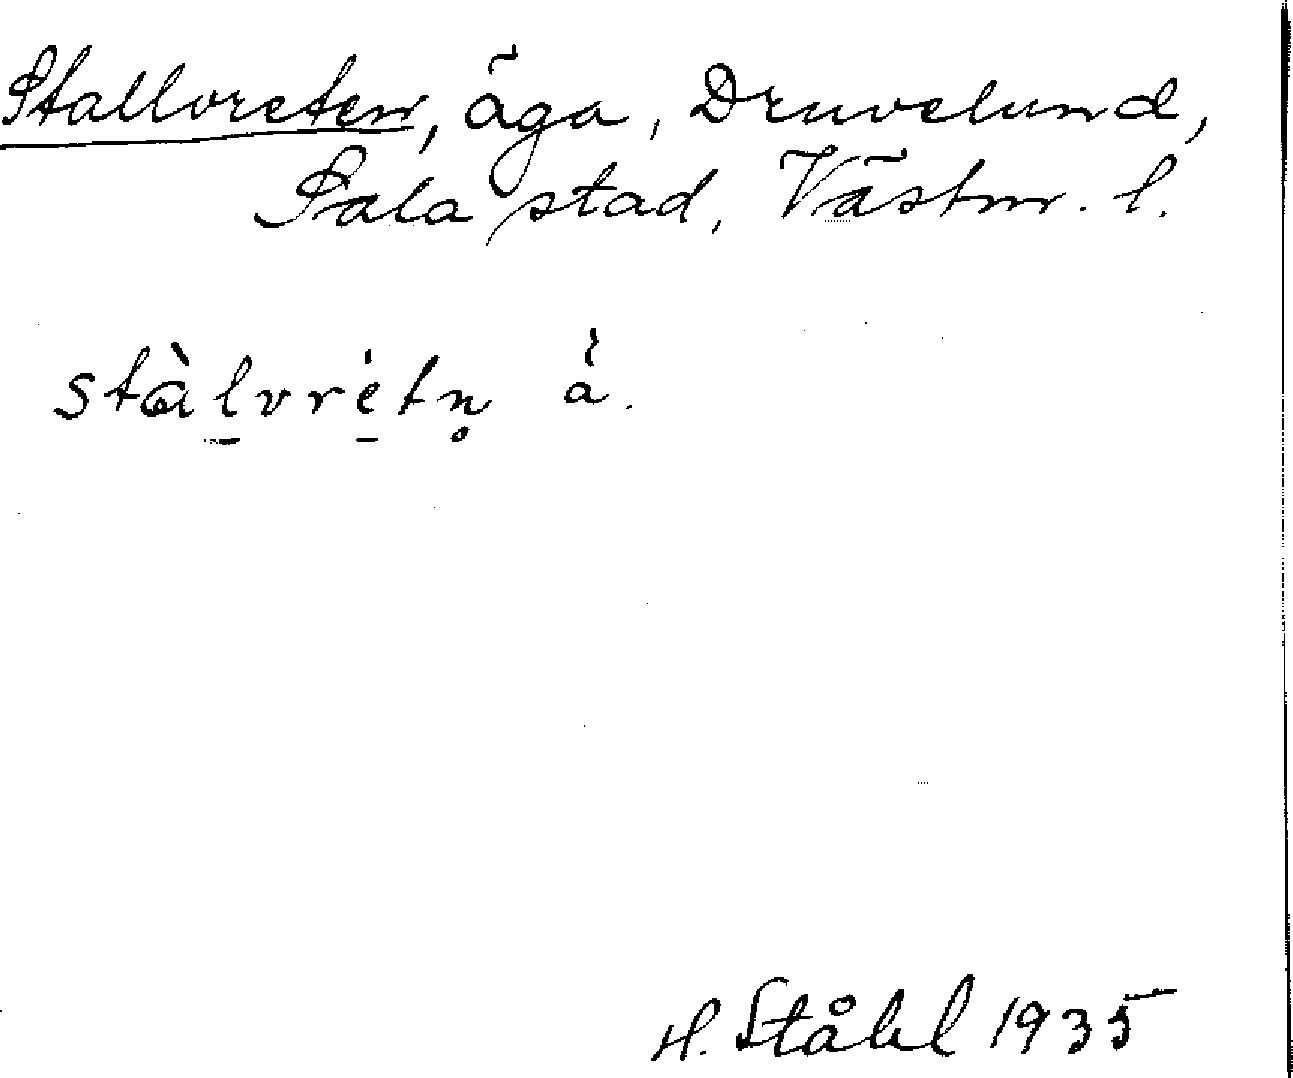 Stallvreten, äga, Druvelund,
Sala stad, Västm. l.
stàl̠vre̠tn̥ å̀.
H. Ståhl 1935